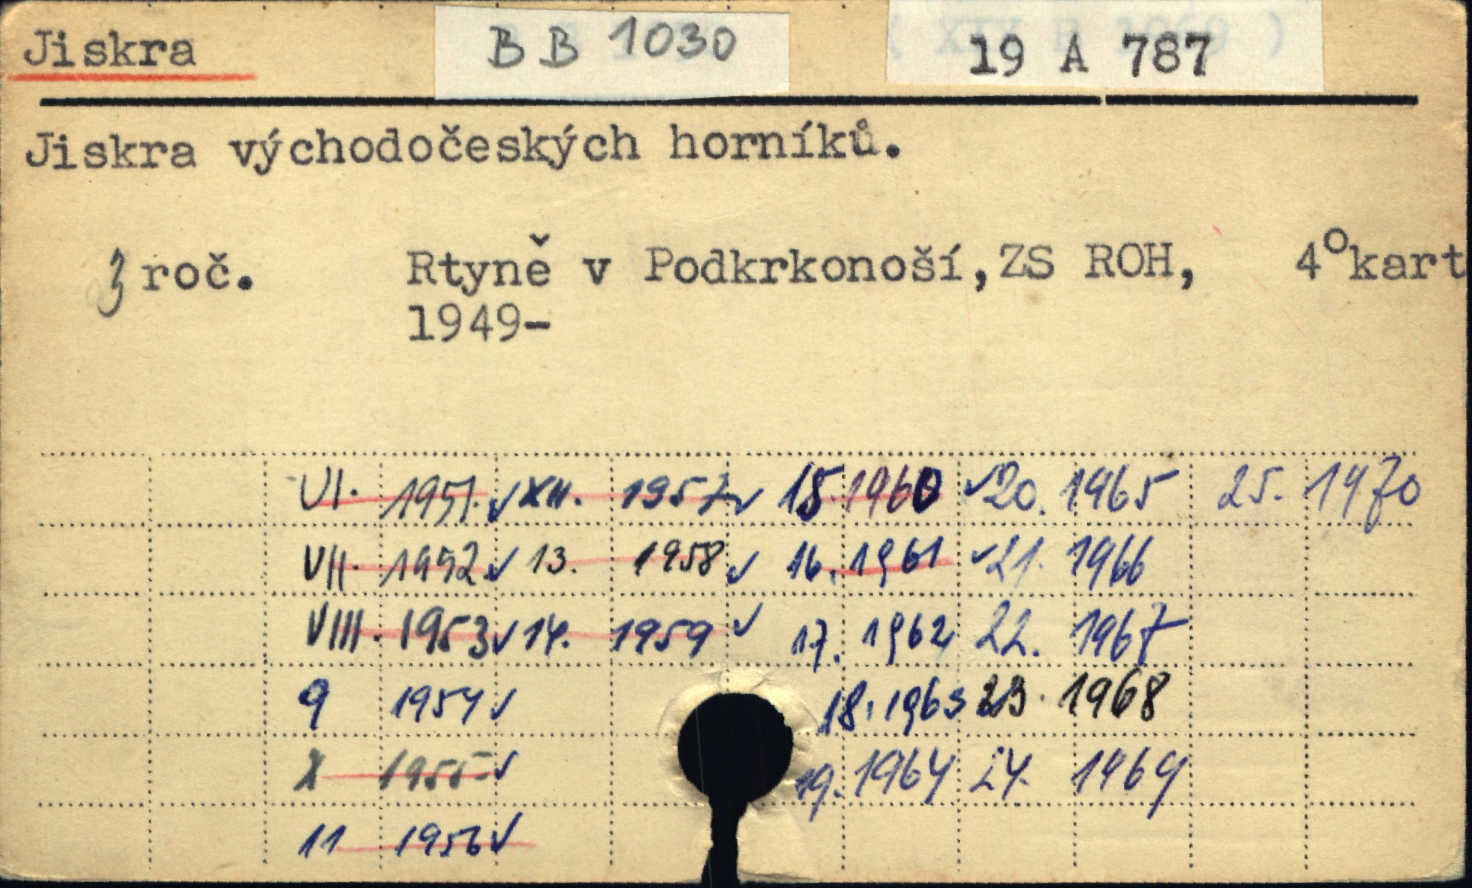 Jiskra BB 1030 19 A 787
Jiskra východočeských horníků.
3 roč. Rtyně v Podkrkonoší, ZS ROH, 4° kart
1949-
VI. 1951. ✓ XII. 1957 ✓ 15. 1960 ✓ 20. 1965 25. 1970
VII. 1952 ✓ 13. 1958 ✓ 16. 1961 ✓ 21. 1966
VIII. 1953 ✓ 14. 1959 ✓ 17. 1962 22. 1967
9 1954 ✓ 18. 1963 23. 1968
X 1955 ✓ 19. 1964 24. 1969
11 1956 ✓